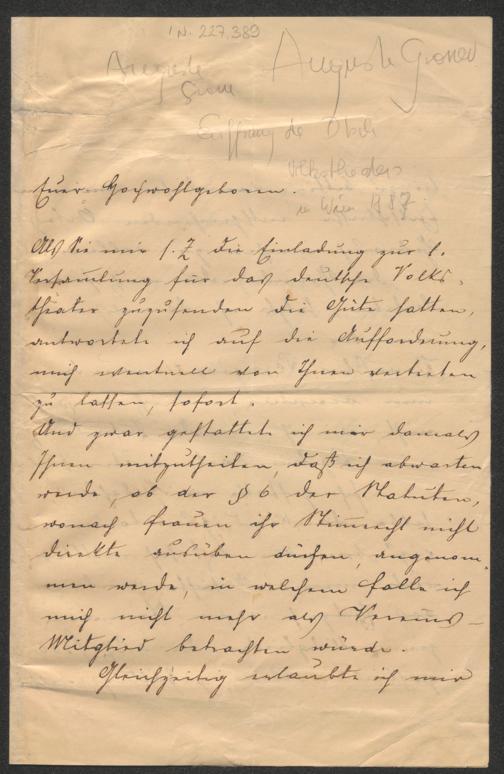 I.N. 227.389
Auguste Auguste Groner
Groner
Eröffnung des Dtsch
Volkstheaters
in Wien 1887
Euer Hochwohlgeboren.
Als Sie mir s. Z. die Einladung zur 1.
Versam̅lung für das deutsche Volks-
theater zuzusenden die Güte hatten,
antwortete ich auf die Aufforderung,
mich eventuell von Ihnen vertreten
zu lassen, sofort.
Und zwar gestattete ich mir damals
Ihnen mitzutheilen, daß ich abwarten
werde, ob der § 6 der Statuten,
wonach Frauen ihr Stim̅recht nicht
direkte ausüben dürfen, angenom-
men werde, in welchem Falle ich
mich nicht mehr als Vereins-
Mitglied betrachten würde.
Gleichzeitig erlaubte ich mir